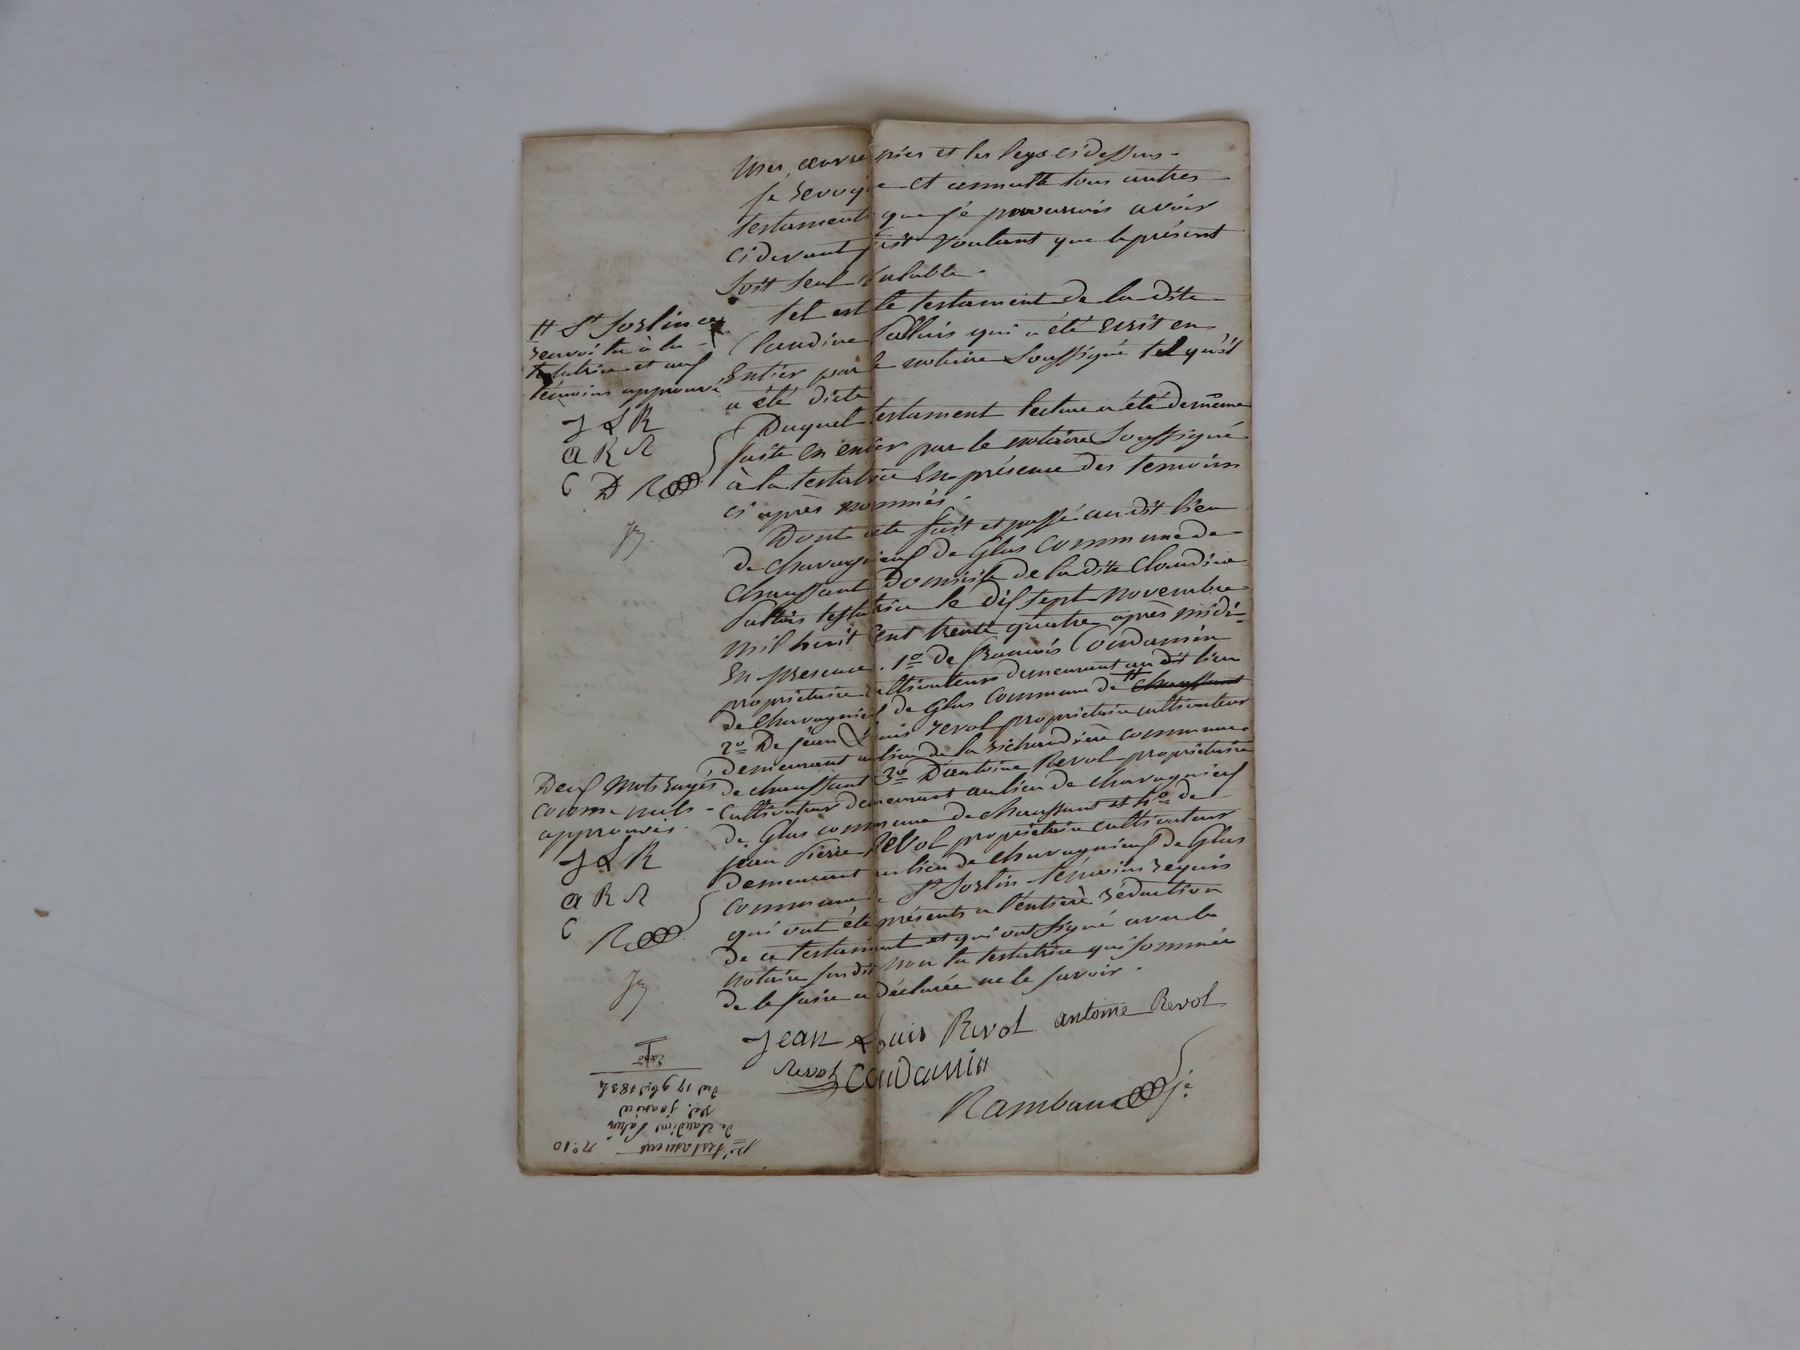 mes œuvres pies et les legs ci dessus.
Je revoque et annulle tous autres
testaments que je pourrais avoir
ci devant fait voulant que le présent
soit seul valable.
tel est le testament de la dite
Claudine Pallais qui a été écrit en
Entier par le notaire soussigné tel qu'il
a été dicté
Duquel testament lecture a été de même
faite en entier par le notaire soussigné
à la testatrice En présence des temoins
ci après nommés.
Dont acte fait et passé au dit lieu
de Chavagnieux de Glas commune de
Chaussant Domicile de la dite Claudine
testatrice le dix sept novembre
mil huit cent trente quatre après midi
En presence. 1º de françois Condamin
propriétaire cultivateur demeurant au dit lieu
de Chavagnieux de Glas commune de # Chaussant
2º De jean Louis revol propriétaire cultivateur
demeurant au lieu de la richaudière commune
de chaussant 3º D'antoine Revol propriétaire
cultivateur demeurant au lieu de chavagnieux
de Glas commune de chaussant et 4º de
jean Pierre Revol propriétaire cultivateur
demeurant au lieu de chavagnieux de Glas
commune de St Sorlin témoins requis
qui ont été présents a l'entière rédaction
de ce testament et qui ont signé avec le
notaire susdit non la testatrice qui sommée
de le faire a déclarée ne le savoir.
Jean Louis Revol antoine Revol
Revol Condamin
Rambaud
# St Sorlin ce
renvoi lu à la
testatrice et aux
témoins approuvé
J L R
a R R
C D R
Deux mots rayés
comme nuls
approuvés.
J L R
a R R
C
R
nº 10
testament
de claudine
Du 17 9bre 1834